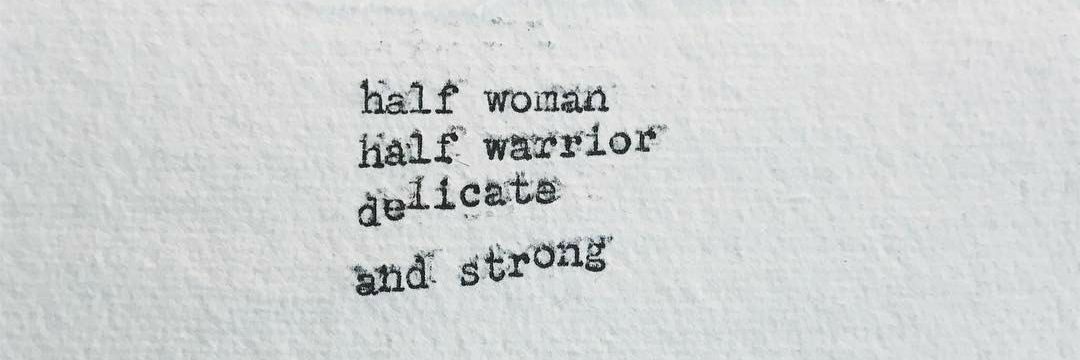 half woman
half warrior
delicate
and strong